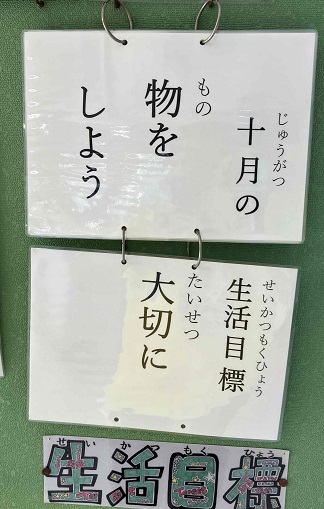 じゅうがつ せいかつもくひょう
十月の生活目標
もの たいせつ
物を大切に
しよう
せい かつ もく ひょう
生活目標